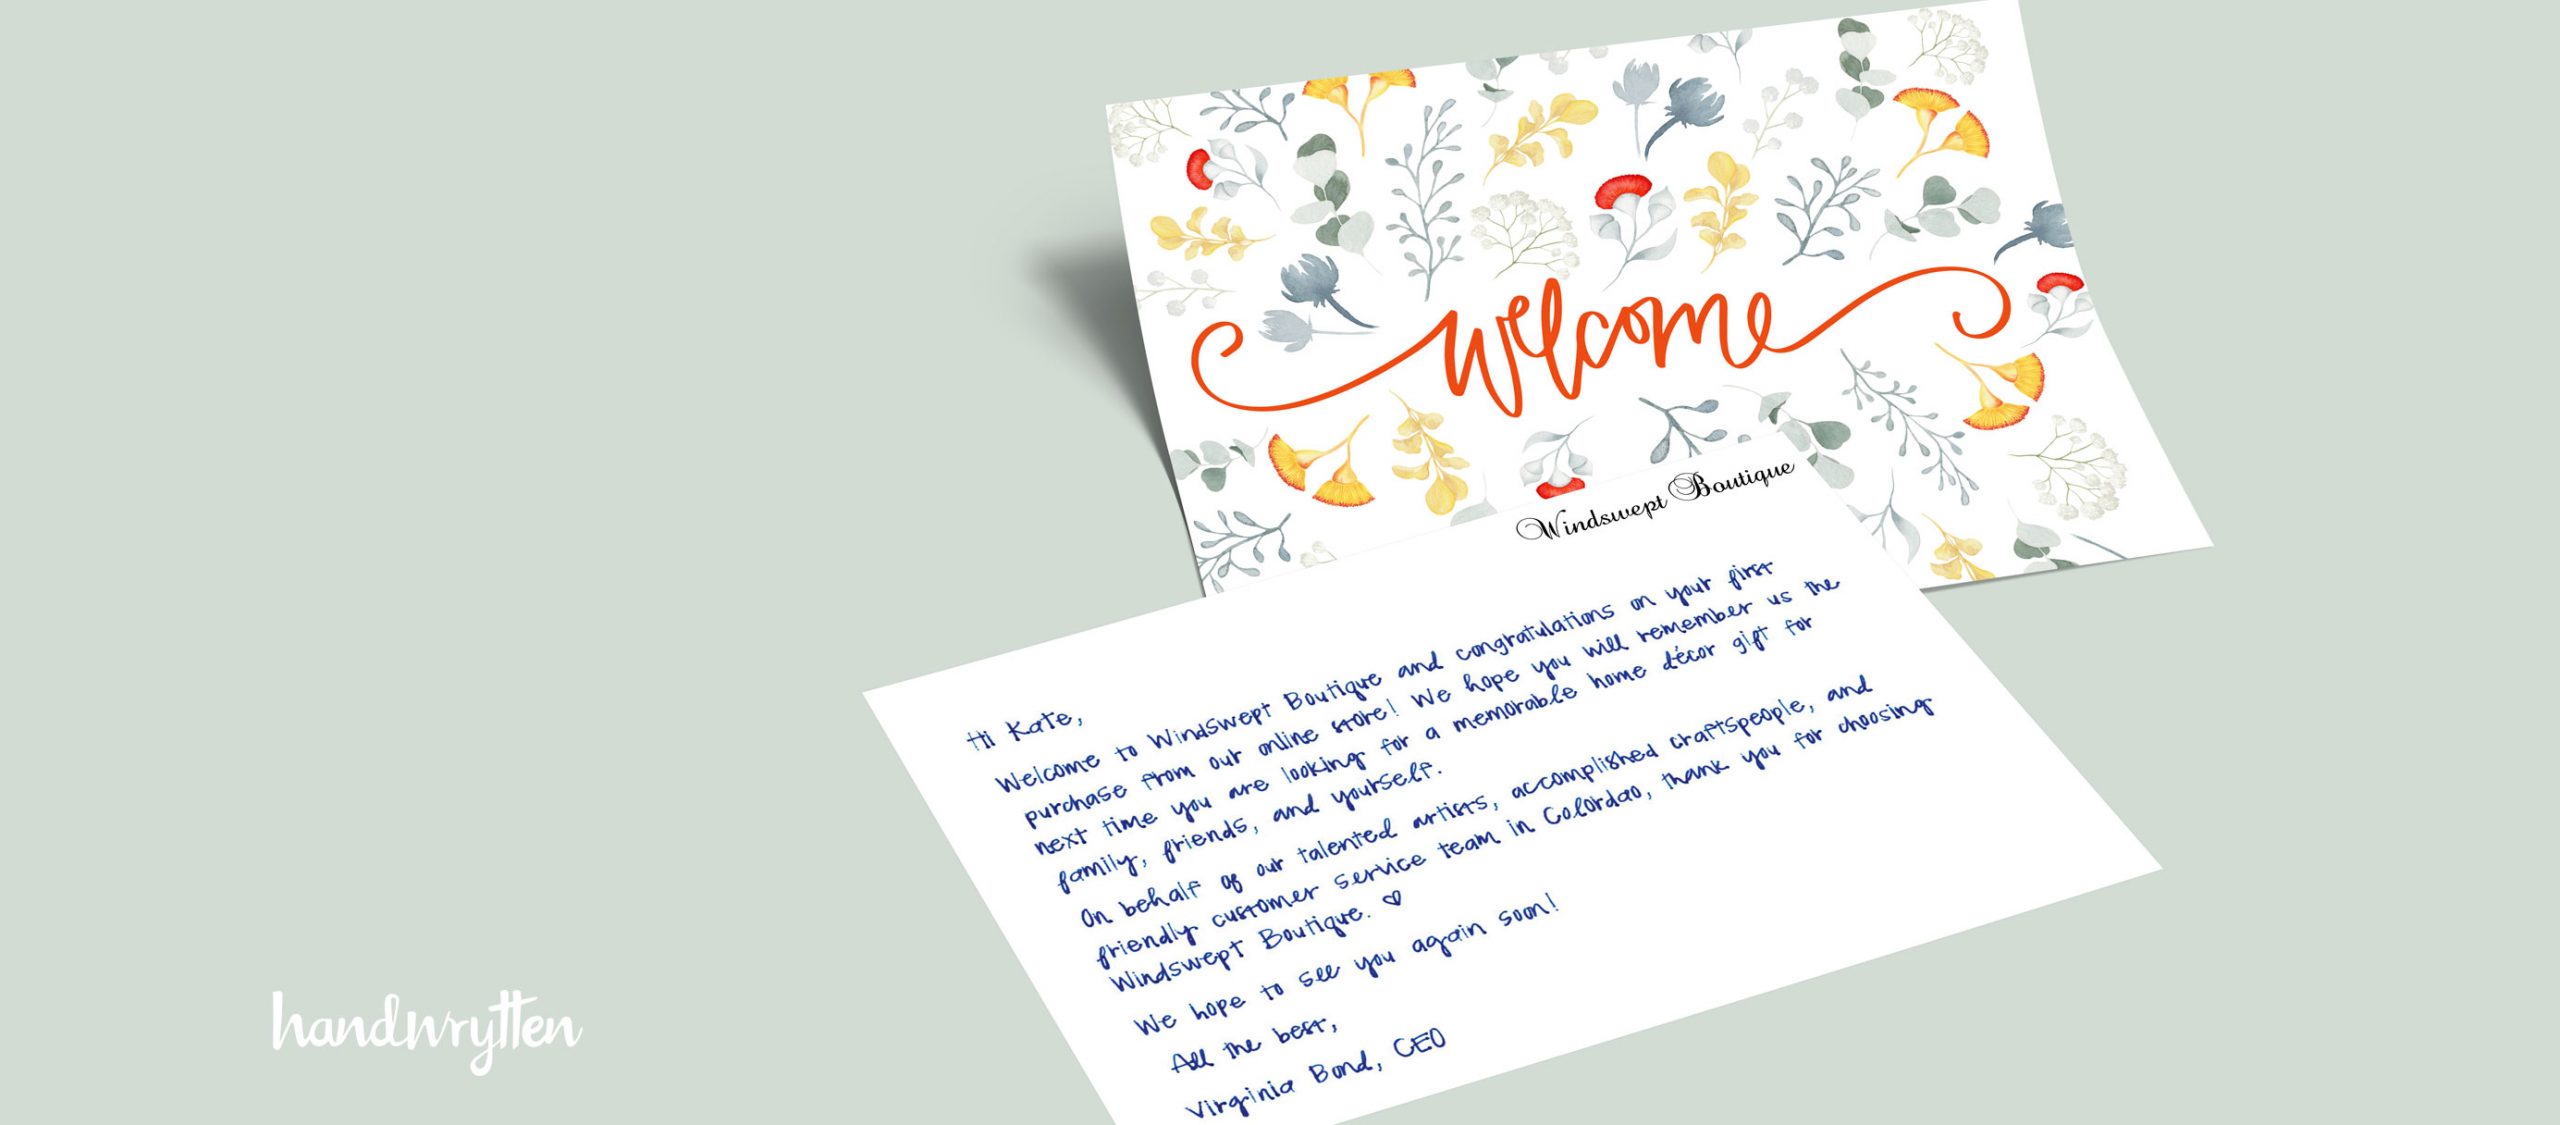 welcome
Windswept Boutique
Hi Kate,
Welcome to Windswept Boutique and congratulations on your first
purchase from our online store! We hope you will remember us the
next time you are looking for a memorable home décor gift for
family, friends, and yourself.
On behalf of our talented artists, accomplished craftspeople, and
friendly customer service team in Colordao, thank you for choosing
Windswept Boutique. ♡
We hope to see you again soon!
All the best,
Virginia Bond, CEO
handwrytten